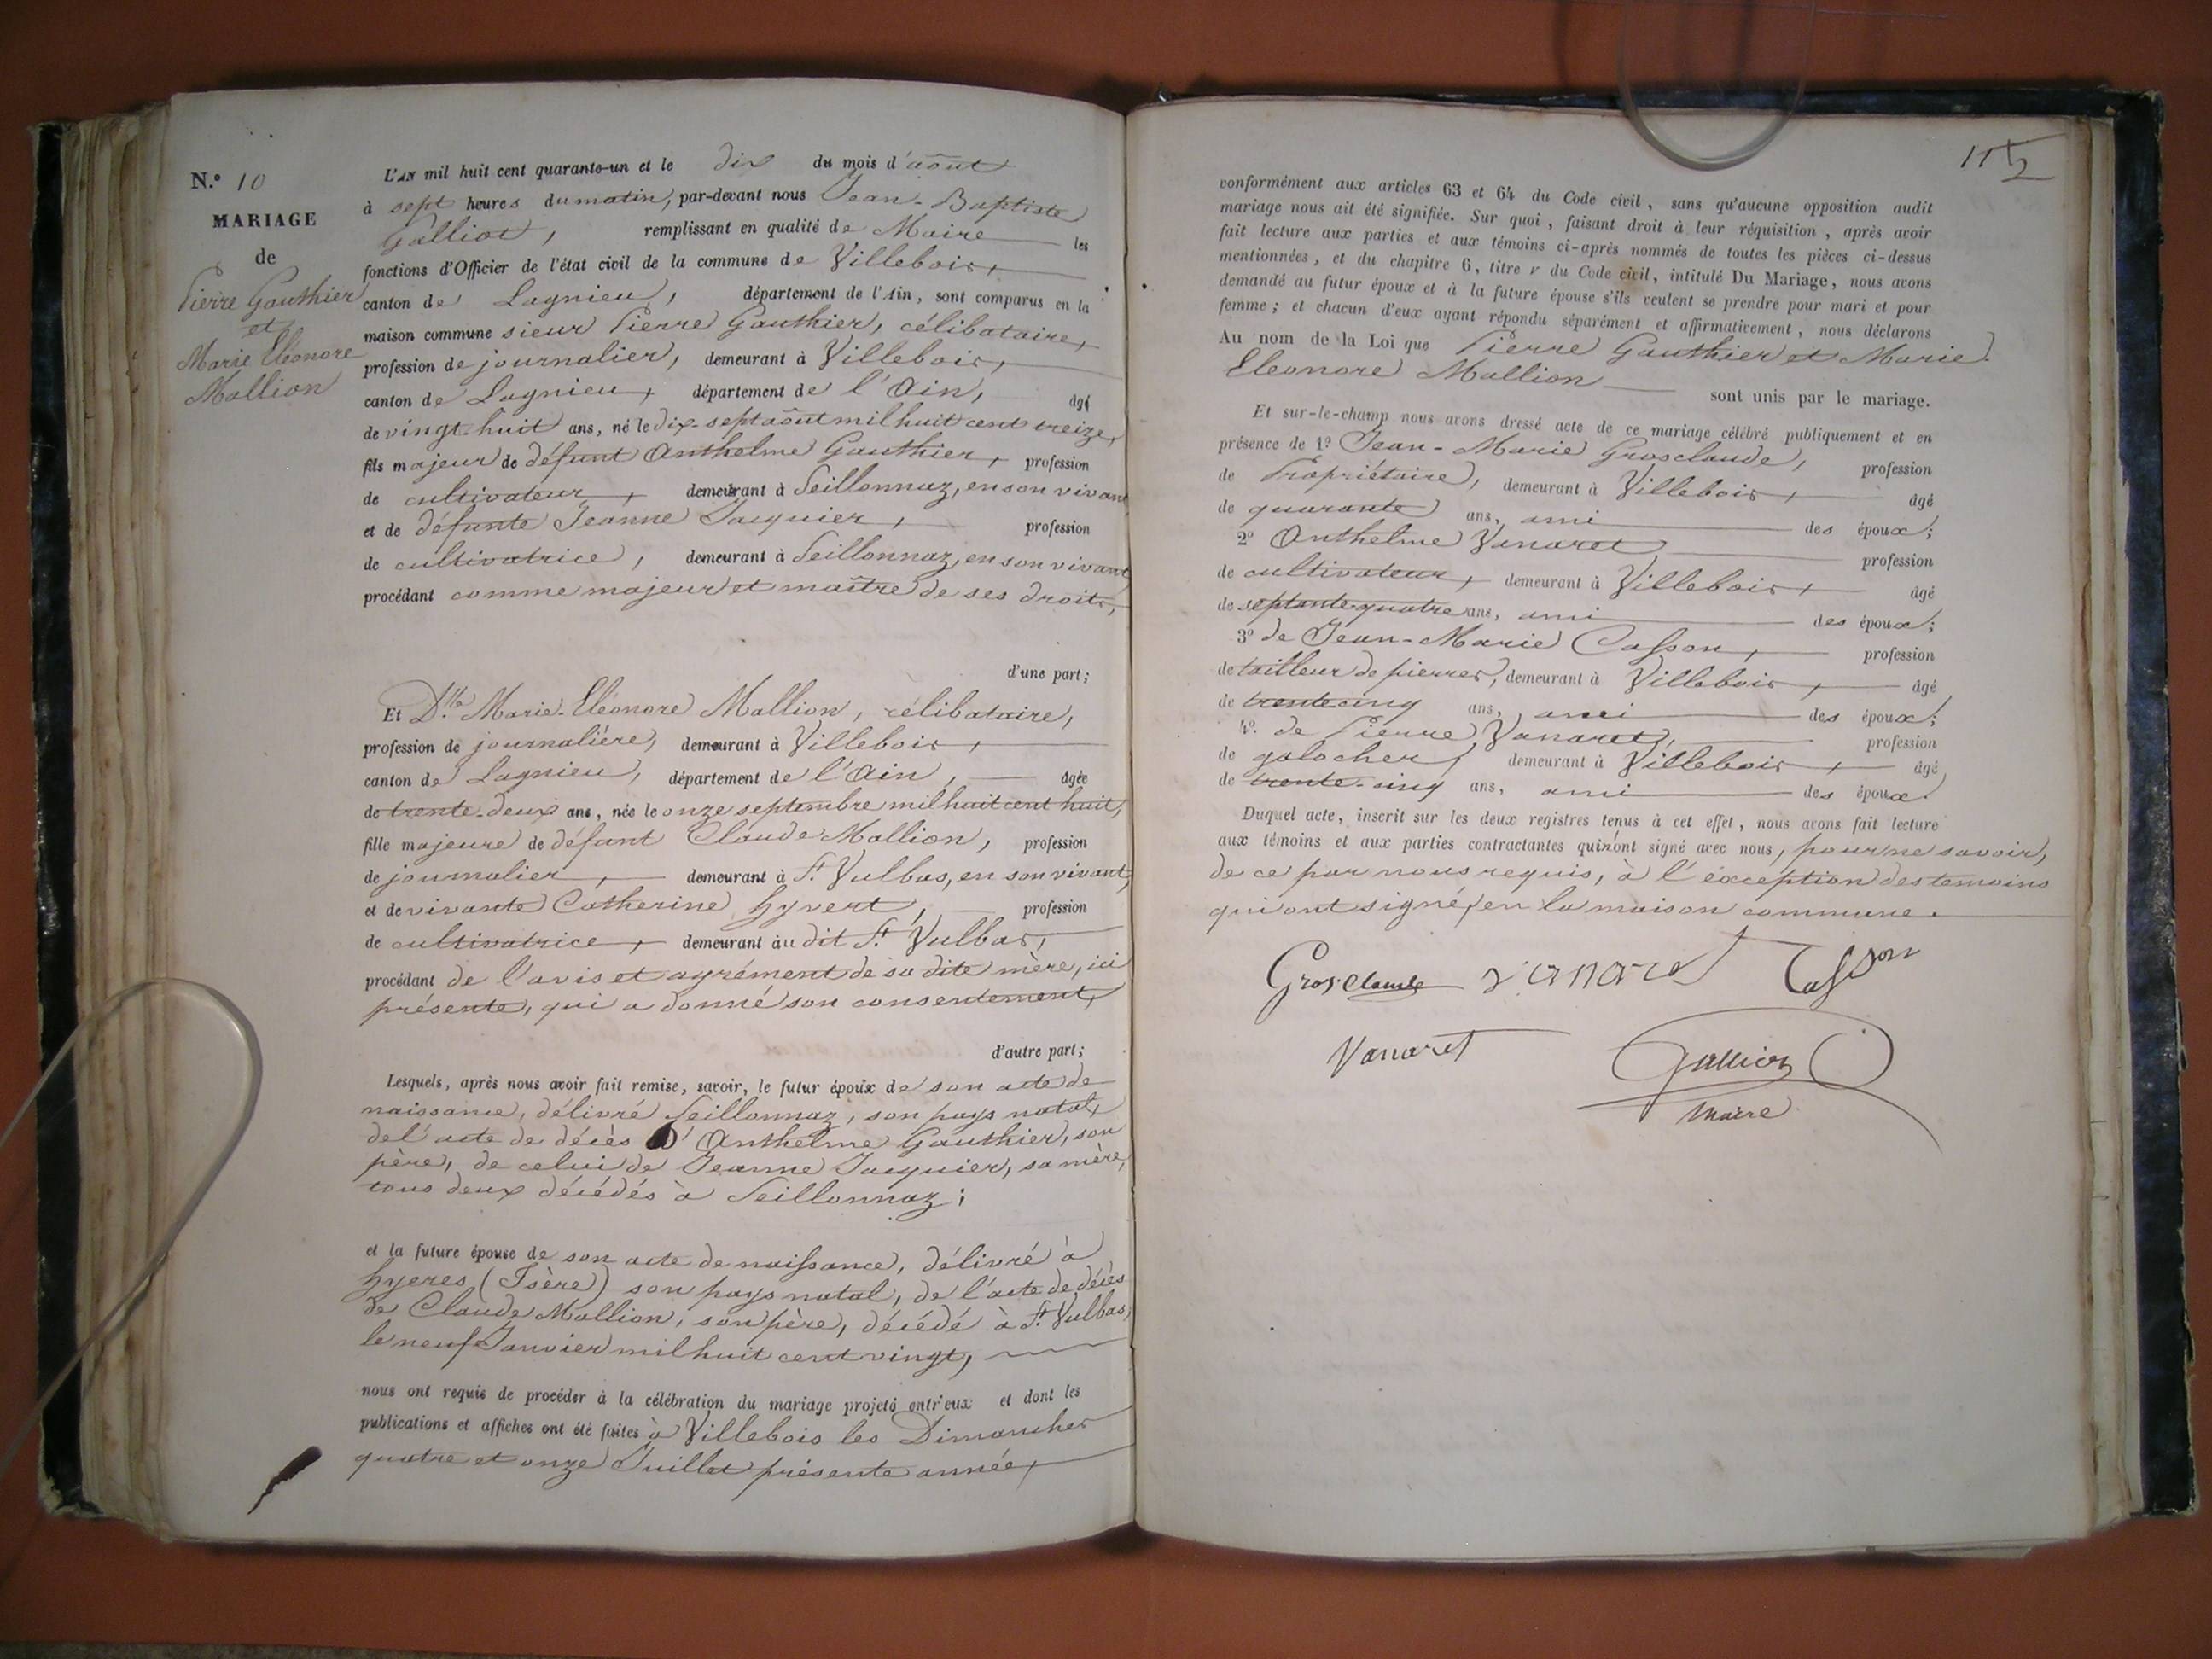 N.º 10
MARIAGE
de
Pierre Gauthier
et
Marie Eléonore
Mallion
L'AN mil huit cent quarante-un et le dix du mois d'août
à sept heures du matin, par-devant nous Jean-Baptiste
Galliot, remplissant en qualité de Maire les
fonctions d'Officier de l'état civil de la commune de Villebois,
canton de Lagnieu, département de l'Ain, sont comparus en la
maison commune sieur Pierre Gauthier, célibataire,
profession de journalier, demeurant à Villebois,
canton de Lagnieu, département de l'Ain, âgé
de vingt-huit ans, né le dix-sept août mil huit cent treize,
fils majeur de défunt Anthelme Gauthier, profession
de cultivateur, demeurant à Seillonnaz, en son vivant
et de défunte Jeanne Jacquier, profession
de cultivatrice, demeurant à Seillonnaz, en son vivant
procédant comme majeur et maître de ses droits,
d'une part;
Et D.lle Marie-Eléonore Mallion, célibataire,
profession de journalière, demeurant à Villebois,
canton de Lagnieu, département de l'Ain, âgée
de trente-deux ans, née le onze septembre mil huit cent huit,
fille majeure de défunt Claude Mallion, profession
de journalier, demeurant à St. Vulbas, en son vivant,
et de vivante Catherine hyvert, profession
de cultivatrice, demeurant au dit St. Vulbas,
procédant de l'avis et agrément de sa dite mère, ici
présente, qui a donné son consentement,
d'autre part;
Lesquels, après nous avoir fait remise, savoir, le futur époux de son acte de
naissance, délivré Seillonnaz, son pays natal,
de l'acte de décès d'Anthelme Gauthier, son
père, de celui de Jeanne Jacquier, sa mère,
tous deux décédés à Seillonnaz;
et la future épouse de son acte de naissance, délivré à
hyeres (Isère) son pays natal, de l'acte de décès
de Claude Mallion, son père, décédé à St. Vulbas,
le neuf Janvier mil huit cent vingt,
nous ont requis de procéder à la célébration du mariage projeté entr'eux et dont les
publications et affiches ont été faites à Villebois les Dimanches
quatre et onze Juillet présente année,
112
conformément aux articles 63 et 64 du Code civil, sans qu'aucune opposition audit
mariage nous ait été signifiée. Sur quoi, faisant droit à leur réquisition, après avoir
fait lecture aux parties et aux témoins ci-après nommés de toutes les pièces ci-dessus
mentionnées, et du chapitre 6, titre v du Code civil, intitulé Du Mariage, nous avons
demandé au futur époux et à la future épouse s'ils veulent se prendre pour mari et pour
femme; et chacun d'eux ayant répondu séparément et affirmativement, nous déclarons
Au nom de la Loi que Pierre Gauthier et Marie
Eleonore Mallion sont unis par le mariage.
Et sur-le-champ nous avons dressé acte de ce mariage célébré publiquement et en
présence de 1º Jean-Marie Grosclaude, profession
de Propriétaire, demeurant à Villebois, âgé
de quarante ans, ami des époux;
2º Anthelme Vanaret profession
de cultivateur, demeurant à Villebois, âgé
de septante-quatre ans, ami des époux;
3º de Jean-Marie Casson, profession
de tailleur de pierres, demeurant à Villebois, âgé
de trente cinq ans, ami des époux;
4º. de Pierre Vanaret, profession
de galocher, demeurant à Villebois, âgé
de trente-cinq ans, ami des époux.
Duquel acte, inscrit sur les deux registres tenus à cet effet, nous avons fait lecture
aux témoins et aux parties contractantes qui n'ont signé avec nous, pour ne savoir,
de ce par nous requis, à l'exception des temoins
qui ont signé, en la maison commune.
Gros-Claude Vanaret Casson
Vanaret Galliot
Maire